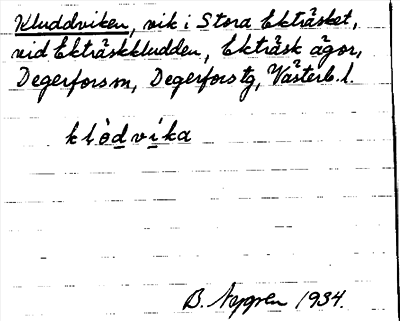 Kluddviken, vik i Stora Ekträsket,
vid Ekträskkludden, Ekträsk ägor,
Degerfors sn, Degerfors tg, Västerb. l.
klòdvìka
B. Nygren 1934.